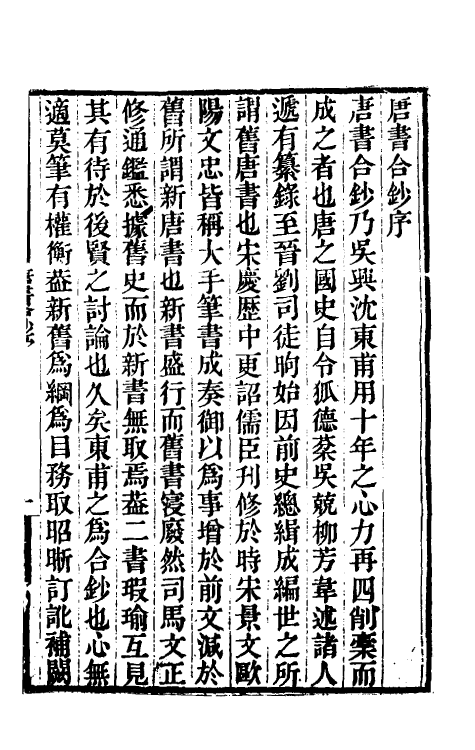 唐書合鈔序
唐書合鈔乃吳興沈東甫用十年之心力再四削稾而
成之者也唐之國史自令狐德棻吳兢柳芳韋述諸人
遞有纂錄至晉劉司徒昫始因前史總緝成編世之所
謂舊唐書也宋慶歷中更詔儒臣刊修於時宋景文歐
陽文忠皆稱大手筆書成奏御以爲事增於前文減於
舊所謂新唐書也新書盛行而舊書寖廢然司馬文正
修通鑑悉據舊史而於新書無取焉葢二書瑕瑜互見
其有待於後賢之討論也久矣東甫之爲合鈔也心無
適莫筆有權衡葢新舊爲綱爲目務取昭晰訂訛補闕